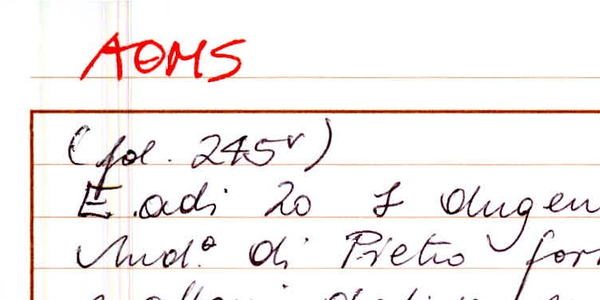 AOMS
(fol. 245v)
E adi 20 f dugen
And.o di Pietro forn